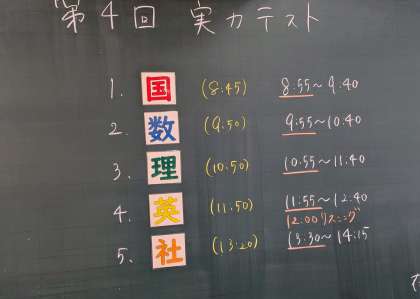 第4回 実力テスト
1. 国 (8:45) 8:55～9:40
2. 数 (9:50) 9:55～10:40
3. 理 (10:50) 10:55～11:40
4. 英 (11:50) 11:55～12:40
12:00リスニング
5. 社 (13:20) 13:30～14:15